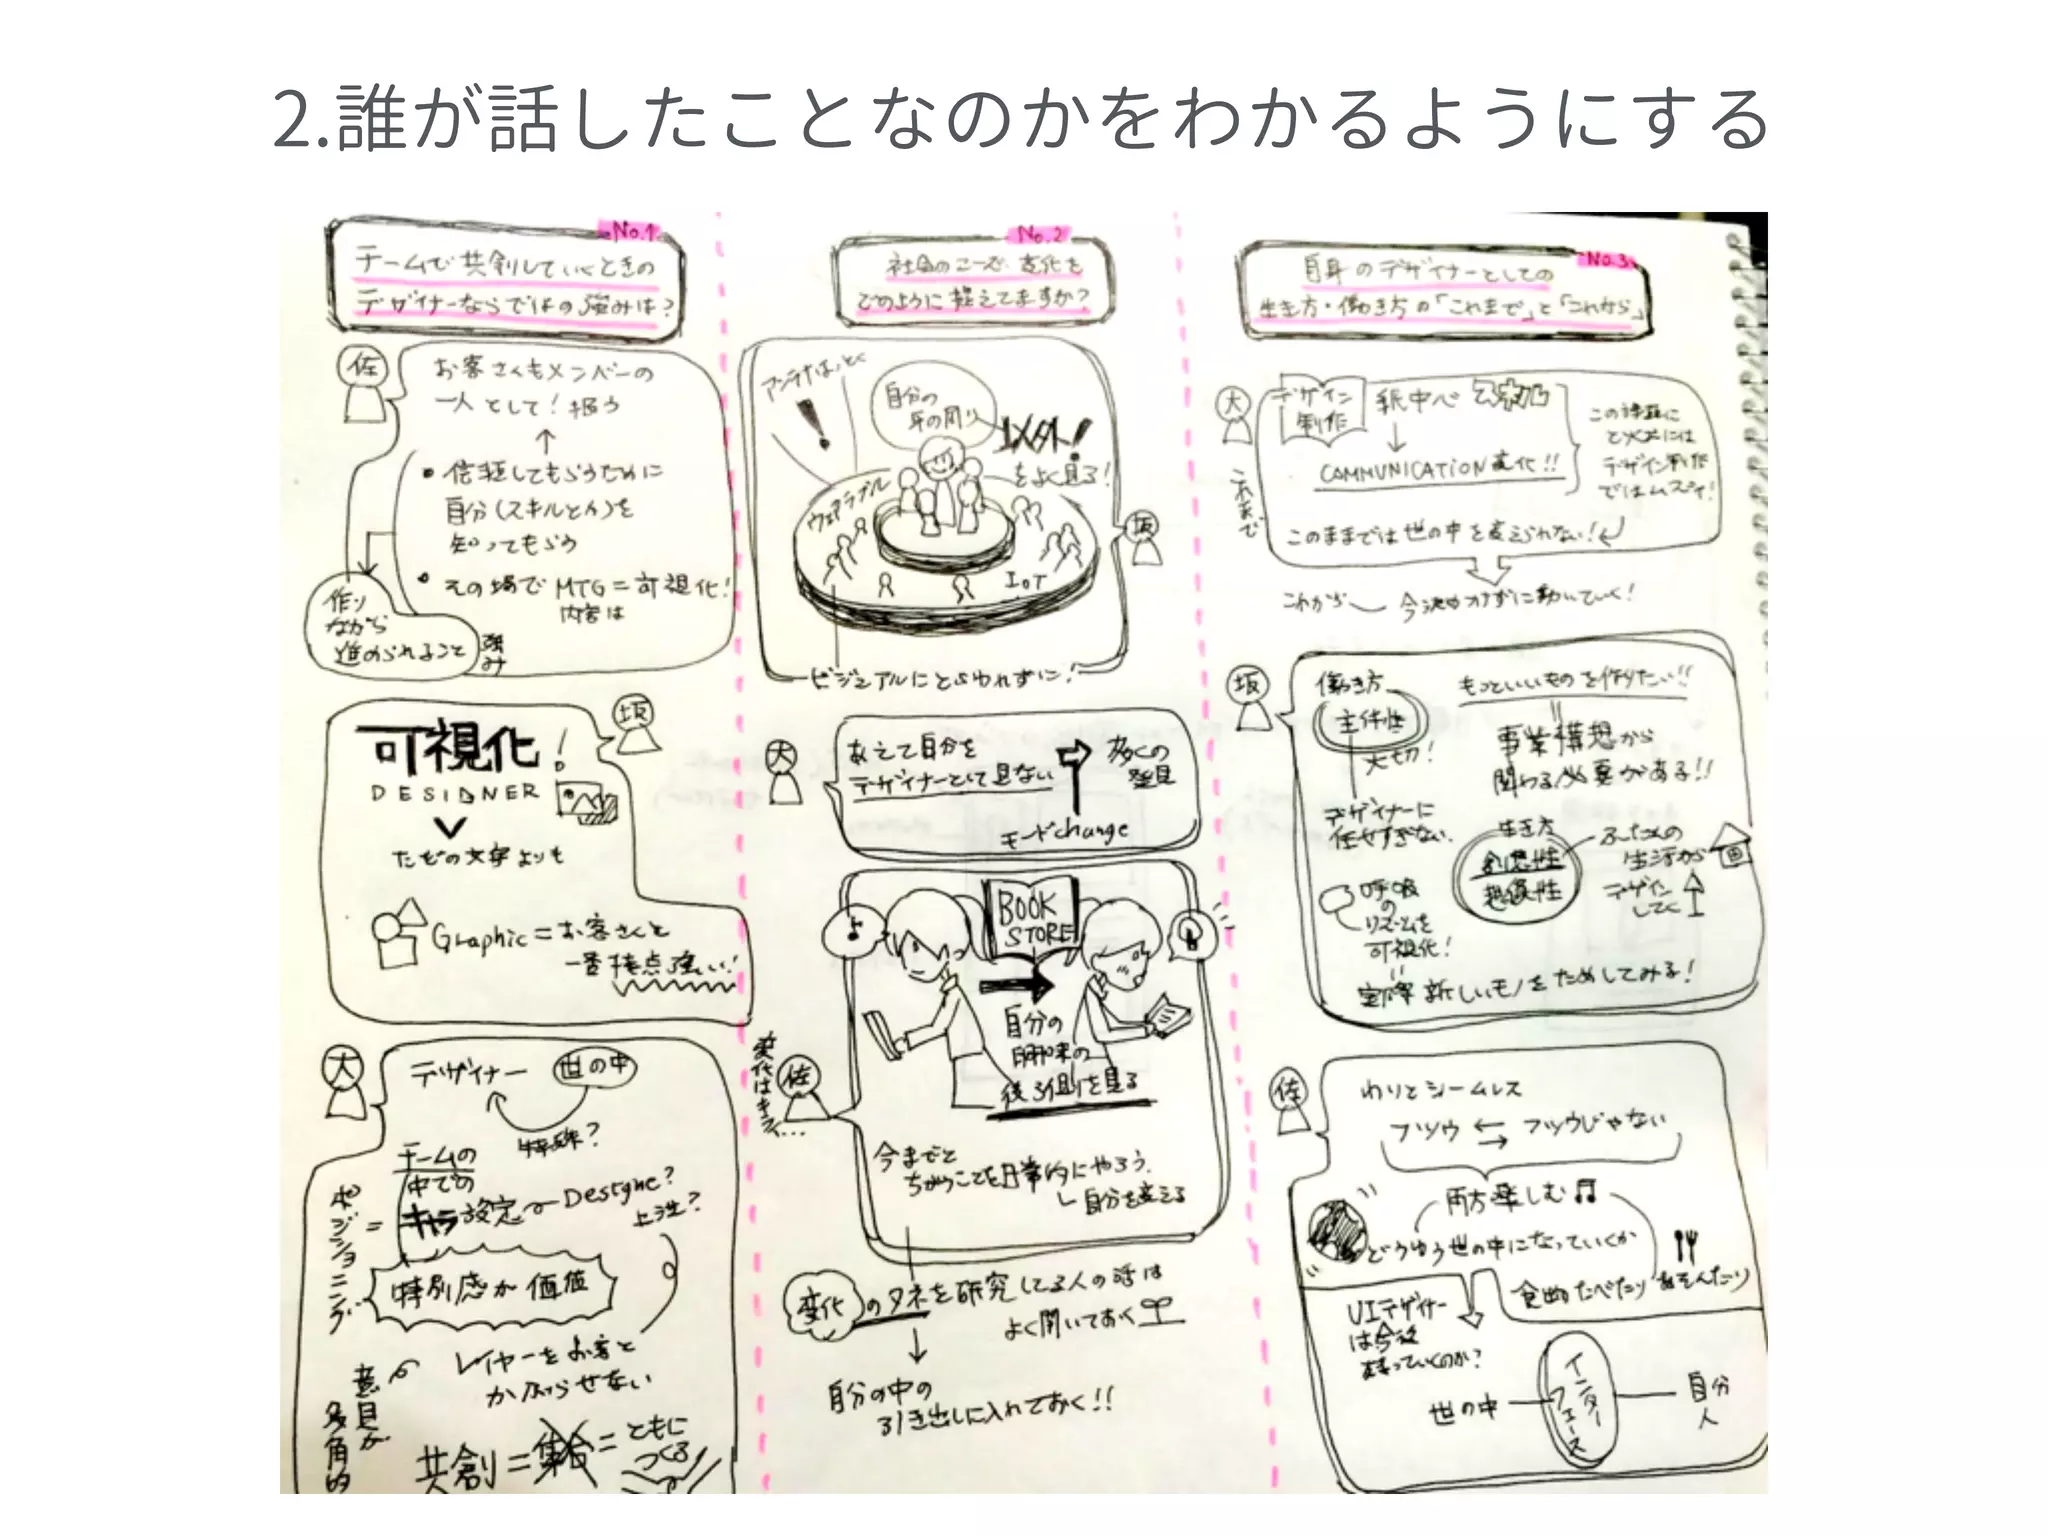 2.誰が話したことなのかをわかるようにする
No.1
チームで共創していくときの
デザイナーならではの強みは?
佐
お客さんもメンバーの
一人として!扱う
• 信頼してもらうために
自分(スキルとか)を
知ってもらう
• その場でMTG=可視化!
内容は
作り
ながら
進められること
強み
坂
可視化!
DESIGNER
ただの文字よりも
Graphic=お客さんと
一番接点強い!
大
デザイナー
世の中
特殊?
チームの
中での
キャラ設定
Designe?
上流?
ポジショニング
=
特別感が価値
レイヤーをお客と
かぶらせない
意見が
多角的
共創=集合=ともに
つくる
No.2
社会のニーズ、変化を
どのように捉えてますか?
アンテナはっとく
自分の
身の周り
以外!
をよく見る!
ウェアラブル
IoT
坂
ビジュアルにとらわれずに!
大
あえて自分を
デザイナーとして見ない
多くの
発見
モードchange
BOOK
STORE
自分の
興味の
後ろ側を見る
変化はキライ...
佐
今までと
ちがうことを日常的にやろう。
自分を変える
変化のタネを研究してる人の話は
よく聞いておく
自分の中の
引き出しに入れておく!!
No.3
自身のデザイナーとしての
生き方・働き方の「これまで」と「これから」
大
これまで
デザイン
制作
紙中心
COMMUNICATION変化!!
この課題に
とどめには
デザイン制作
ではムズイ!
このままでは世の中を変えられない!
これから
今決めつけずに動いていく!
坂
働き方
主体性
大切!
もっといいものを作りたい!!
事業構想から
関わる必要がある!!
デザイナーに
任せすぎない。
生き方
想像性
ふだんの
生活から
デザイン
してく
呼吸
の
リズムを
可視化!
実際新しいモノをためしてみる!
佐
わりとシームレス
フツウ
フツウじゃない
両方楽しむ
どうゆう世の中になっていくか
食事たべたりあそんだり
UIデザイナー
は今後
変っていくのか?
世の中
インターフェース
自分
人